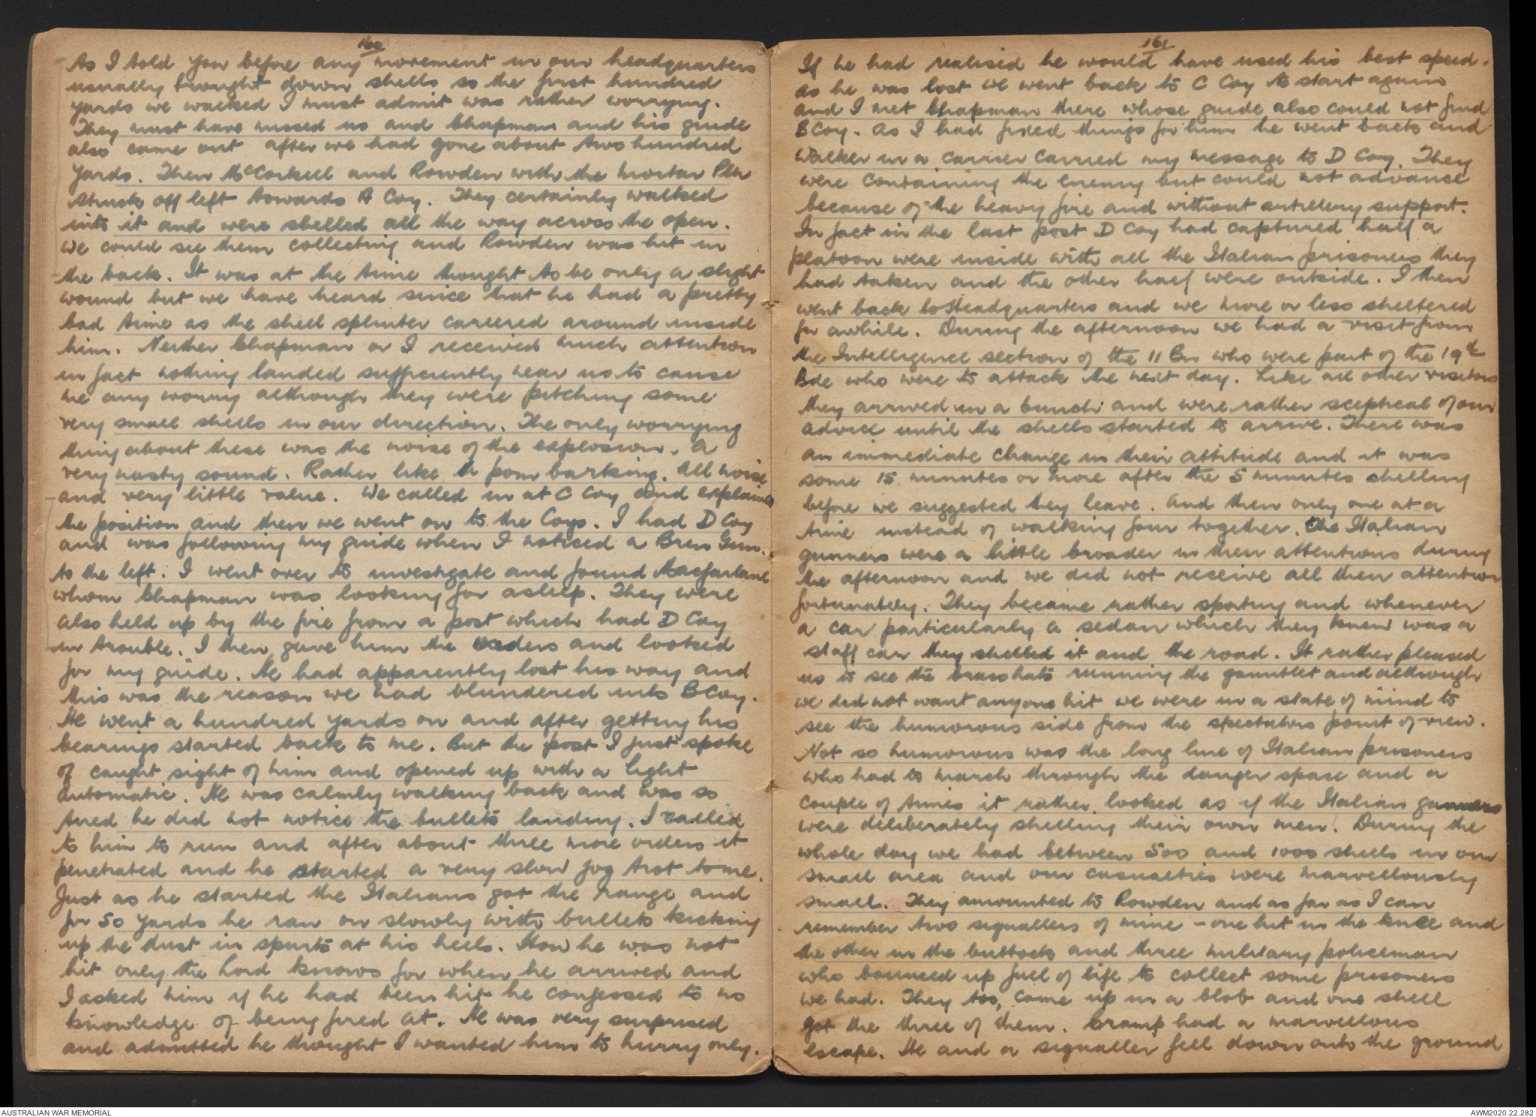 160
As I told you before any movement in our headquarters
usually brought down shells so the first hundred
yards we walked I must admit was rather worrying.
They must have missed us and Chapman and his guide
also came out after we had gone about two hundred
yards. Then McCorkell and Rowden with the mortar Pln
struck off left towards A Coy. They certainly walked
into it and were shelled all the way across the open.
We could see them collecting and Rowden was hit in
the back. It was at the time thought to be only a slight
wound but we have heard since that he had a pretty
bad time as the shell splinter careered around inside
him. Neither Chapman or I received much attention
in fact nothing landed sufficiently near us to cause
we any worry although they were pitching some
very small shells in our direction. The only worrying
thing about these was the noise of the explosion. A
very nasty sound. Rather like a pom barking. All noise
and very little value. We called in at C Coy and explained
the position and then we went on to the Coys. I had D Coy
and was following my guide when I noticed a Bren Gun.
to the left. I went over to investigate and found Macfarlane
whom Chapman was looking for asleep. They were
also held up by the fire from a post which had D Coy
in trouble. I then gave him the orders and looked
for my guide. He had apparently lost his way and
this was the reason we had blundered into B Coy.
He went a hundred yards on and after getting his
bearings started back to me. But the post I just spoke
of caught sight of him and opened up with a light
automatic. He was calmly walking back and was so
tired he did not notice the bullets landing. I called
to him to run and after about three more orders it
penetrated and he started a very slow jog trot to me.
Just as he started the Italians got the range and
for 50 yards he ran on slowly with bullets kicking
up the dust in spurts at his heels. How he was not
hit only the Lord knows for when he arrived and
I asked him if he had been hit he confessed to no
knowledge of being fired at. He was very surprised
and admitted he thought I wanted him to hurry only.
161
If he had realised he would have used his best speed.
As he was lost we went back to C Coy to start again
and I met Chapman there whose guide also could not find
B Coy. As I had fixed things for him he went back and
Walker in a carrier carried my message to D Coy. They
were containing the enemy but could not advance
because of the heavy fire and without artillery support.
In fact in the last post D Coy had captured half a
platoon were inside with all the Italian prisoners they
had taken and the other half were outside. I then
went back to Headquarters and we more or less sheltered
for awhile. During the afternoon we had a visit from
the Intelligence section of the 11 Bn who were part of the 19th
Bde who were to attack the next day. Like all other visitors
they arrived in a bunch and were rather sceptical of our
advice until the shells started to arrive. There was
an immediate change in their attitude and it was
some 15 minutes or more after the 5 minutes shelling
before we suggested they leave. And then only one at a
time instead of walking four together. The Italian
gunners were a little broader in their attentions during
the afternoon and we did not receive all their attention
fortunately. They became rather sporting and whenever
a car particularly a sedan which they knew was a
staff car they shelled it and the road. It rather pleased
us to see the brasshats running the gauntlet and although
we did not want anyone hit we were in a state of mind to
see the humorous side from the spectators point of view.
Not so humorous was the long line of Italian prisoners
who had to march through the danger space and a
couple of times it rather looked as if the Italian gunners
were deliberately shelling their own men. During the
whole day we had between 500 and 1000 shells in our
small area and our casualties were marvellously
small. They amounted to Rowden and as far as I can
remember two signallers of mine - one hit in the knee and
the other in the buttocks and three military policeman
who bounced up full of life to collect some prisoners
we had. They too, came up in a blob and one shell
got the three of them. Cramp had a marvellous
escape. He and a signaller fell down onto the ground
AUSTRALIAN WAR MEMORIAL
AWM2020.22.282